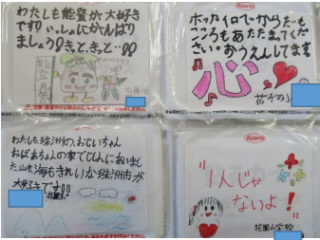 わたしも能登が大好き
です!!いっしょにがんばり
ましょう!きっと、きっと…!!
ホッカイロでからだも
こころもあたたまってくだ
さい。おうえんしてます
心
わたしも珠洲の、おじいちゃん
おばあちゃんの家で
山も海もきれいな珠洲市が
大好きです!!
"1人じゃ
ないよ!"
花園小学校